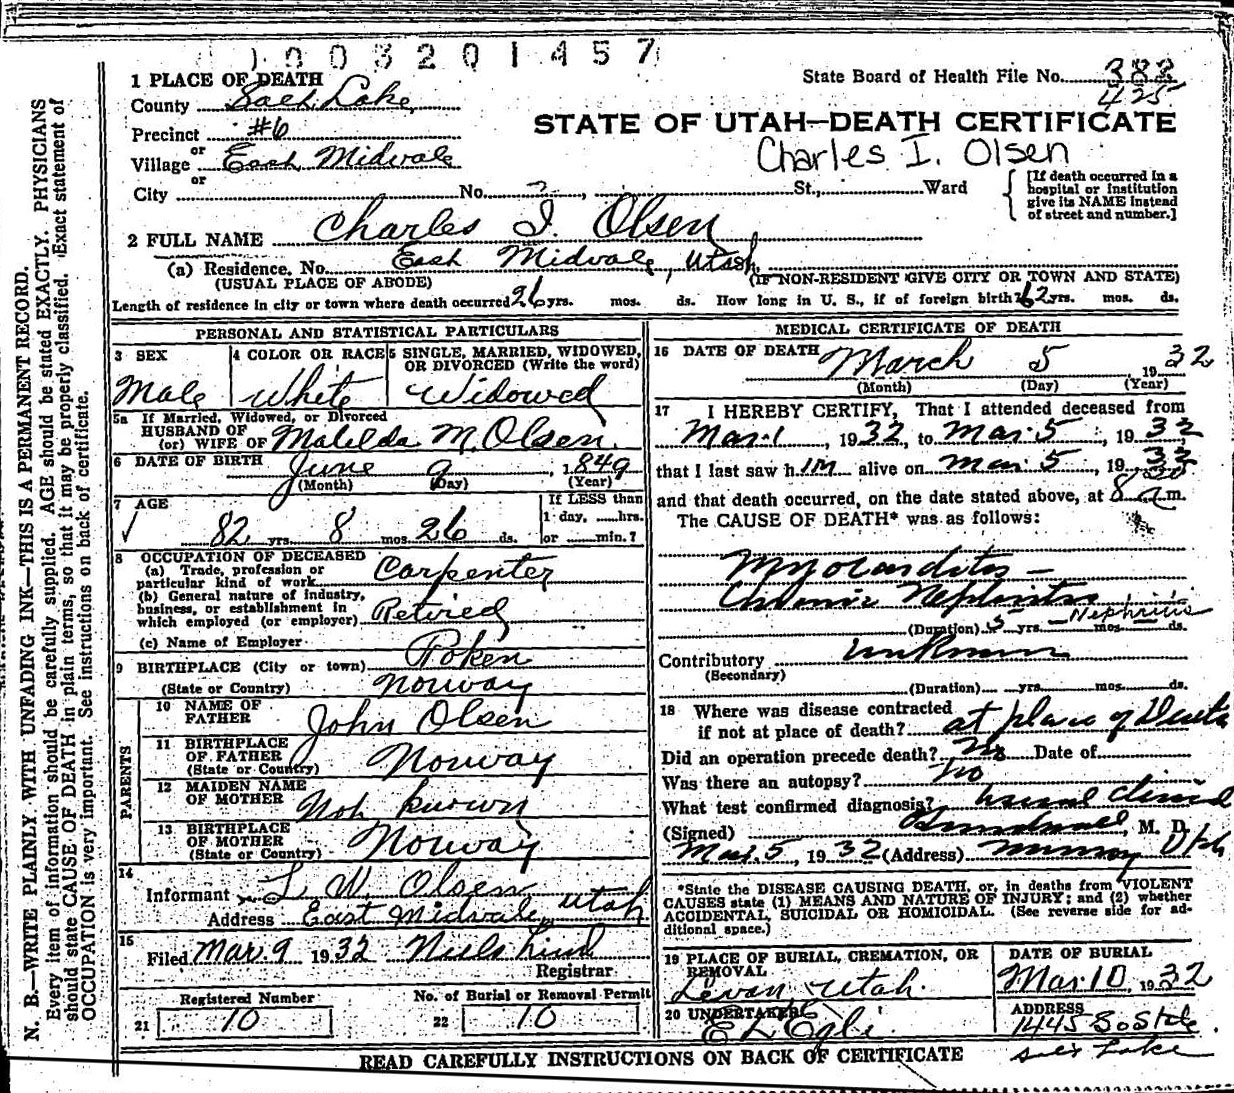 1003201457
State Board of Health File No. 382
425
1 PLACE OF DEATH
County Salt Lake
Precinct #6
or
Village East Midvale
or
City No. St., Ward
STATE OF UTAH—DEATH CERTIFICATE
Charles I. Olsen
[If death occurred in a hospital or institution give its NAME instead of street and number.]
2 FULL NAME Charles I. Olsen
(a) Residence. No. East Midvale, Utah
(USUAL PLACE OF ABODE) (IF NON-RESIDENT GIVE CITY OR TOWN AND STATE)
Length of residence in city or town where death occurred 26 yrs. mos. ds. How long in U. S., if of foreign birth? 62 yrs. mos. ds.
PERSONAL AND STATISTICAL PARTICULARS
3 SEX
Male
4 COLOR OR RACE
White
5 SINGLE, MARRIED, WIDOWED, OR DIVORCED (Write the word)
Widowed
5a If Married, Widowed, or Divorced
HUSBAND OF
(or) WIFE OF Matilda M. Olsen
6 DATE OF BIRTH June 9, 1849
(Month) (Day) (Year)
7 AGE
82 yrs. 8 mos. 26 ds.
If LESS than
1 day, hrs.
or min.?
8 OCCUPATION OF DECEASED
(a) Trade, profession or
particular kind of work Carpenter
(b) General nature of industry,
business, or establishment in
which employed (or employer) Retired
(c) Name of Employer
9 BIRTHPLACE (City or town)
(State or Country) Norway
PARENTS
10 NAME OF FATHER John Olsen
11 BIRTHPLACE OF FATHER
(State or Country) Norway
12 MAIDEN NAME OF MOTHER Not known
13 BIRTHPLACE OF MOTHER
(State or Country) Norway
14
Informant L W Olsen
Address East Midvale, Utah
15
Filed Mar. 9 1932 Niels Lind
Registrar
Registered Number
21 10
No. of Burial or Removal Permit
22 10
MEDICAL CERTIFICATE OF DEATH
16 DATE OF DEATH March 5, 1932
(Month) (Day) (Year)
17 I HEREBY CERTIFY, That I attended deceased from
Mar. 1, 1932, to Mar. 5, 1932,
that I last saw him alive on Mar. 5, 1932
and that death occurred, on the date stated above, at 8 a.m.
The CAUSE OF DEATH* was as follows:
Myocarditis —
Chronic Nephritis
(Duration) 5 yrs. — Nephritis mos. ds.
Contributory unknown
(Secondary)
(Duration) yrs. mos. ds.
18 Where was disease contracted
if not at place of death? at place of Death
Did an operation precede death? No Date of
Was there an autopsy? no
What test confirmed diagnosis? usual clinical
(Signed) , M. D.
Mar. 5, 1932 (Address) Murray Utah
*State the DISEASE CAUSING DEATH, or, in deaths from VIOLENT
CAUSES state (1) MEANS AND NATURE OF INJURY; and (2) whether
ACCIDENTAL, SUICIDAL OR HOMICIDAL. (See reverse side for ad-
ditional space.)
19 PLACE OF BURIAL, CREMATION, OR
REMOVAL
Levan Utah.
DATE OF BURIAL
Mar. 10, 1932
20 UNDERTAKER
E L Egli
ADDRESS
1445 So State
Salt Lake
READ CAREFULLY INSTRUCTIONS ON BACK OF CERTIFICATE
N. B.—WRITE PLAINLY WITH UNFADING INK—THIS IS A PERMANENT RECORD.
Every item of information should be carefully supplied. AGE should be stated EXACTLY. PHYSICIANS
should state CAUSE OF DEATH in plain terms, so that it may be properly classified. Exact statement of
OCCUPATION is very important. See instructions on back of certificate.